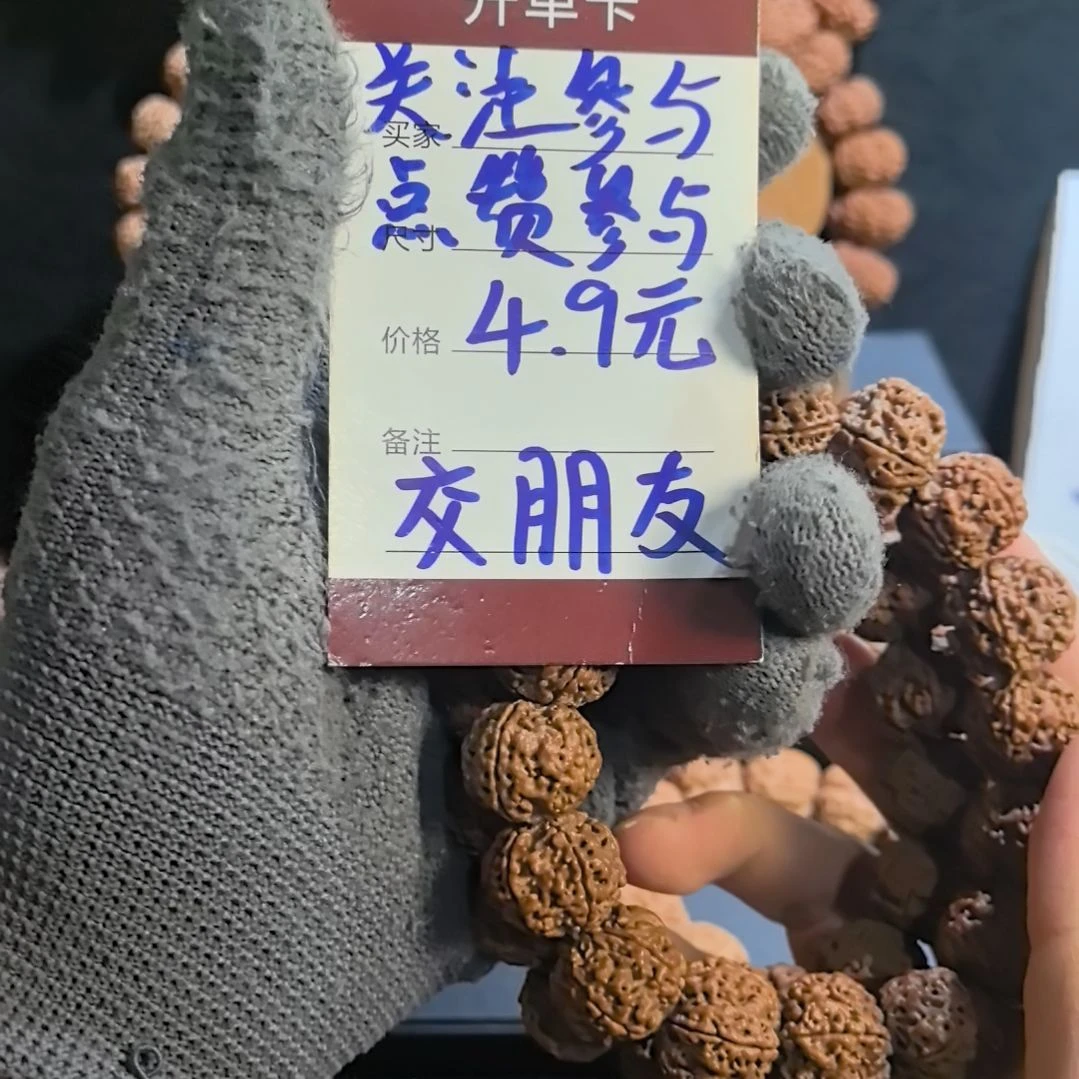 开单卡
关注参与
买家
点赞参与
尺寸
价格 4.9元
备注
交朋友